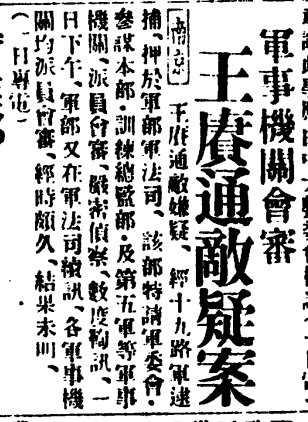 軍事機關會審
王賡通敵疑案
〔南京〕 王賡通敵嫌疑、經十九路軍逮
捕、押於軍部軍法司、該部特請軍委會·
參謀本部·訓練總監部·及第五軍等軍事
機關、派員會審、嚴密偵察、數度詢訊、一
日下午、軍部又在軍法司檢訊、各軍事機
關均派員會審、經時頗久、結果未明、
（一日專電）